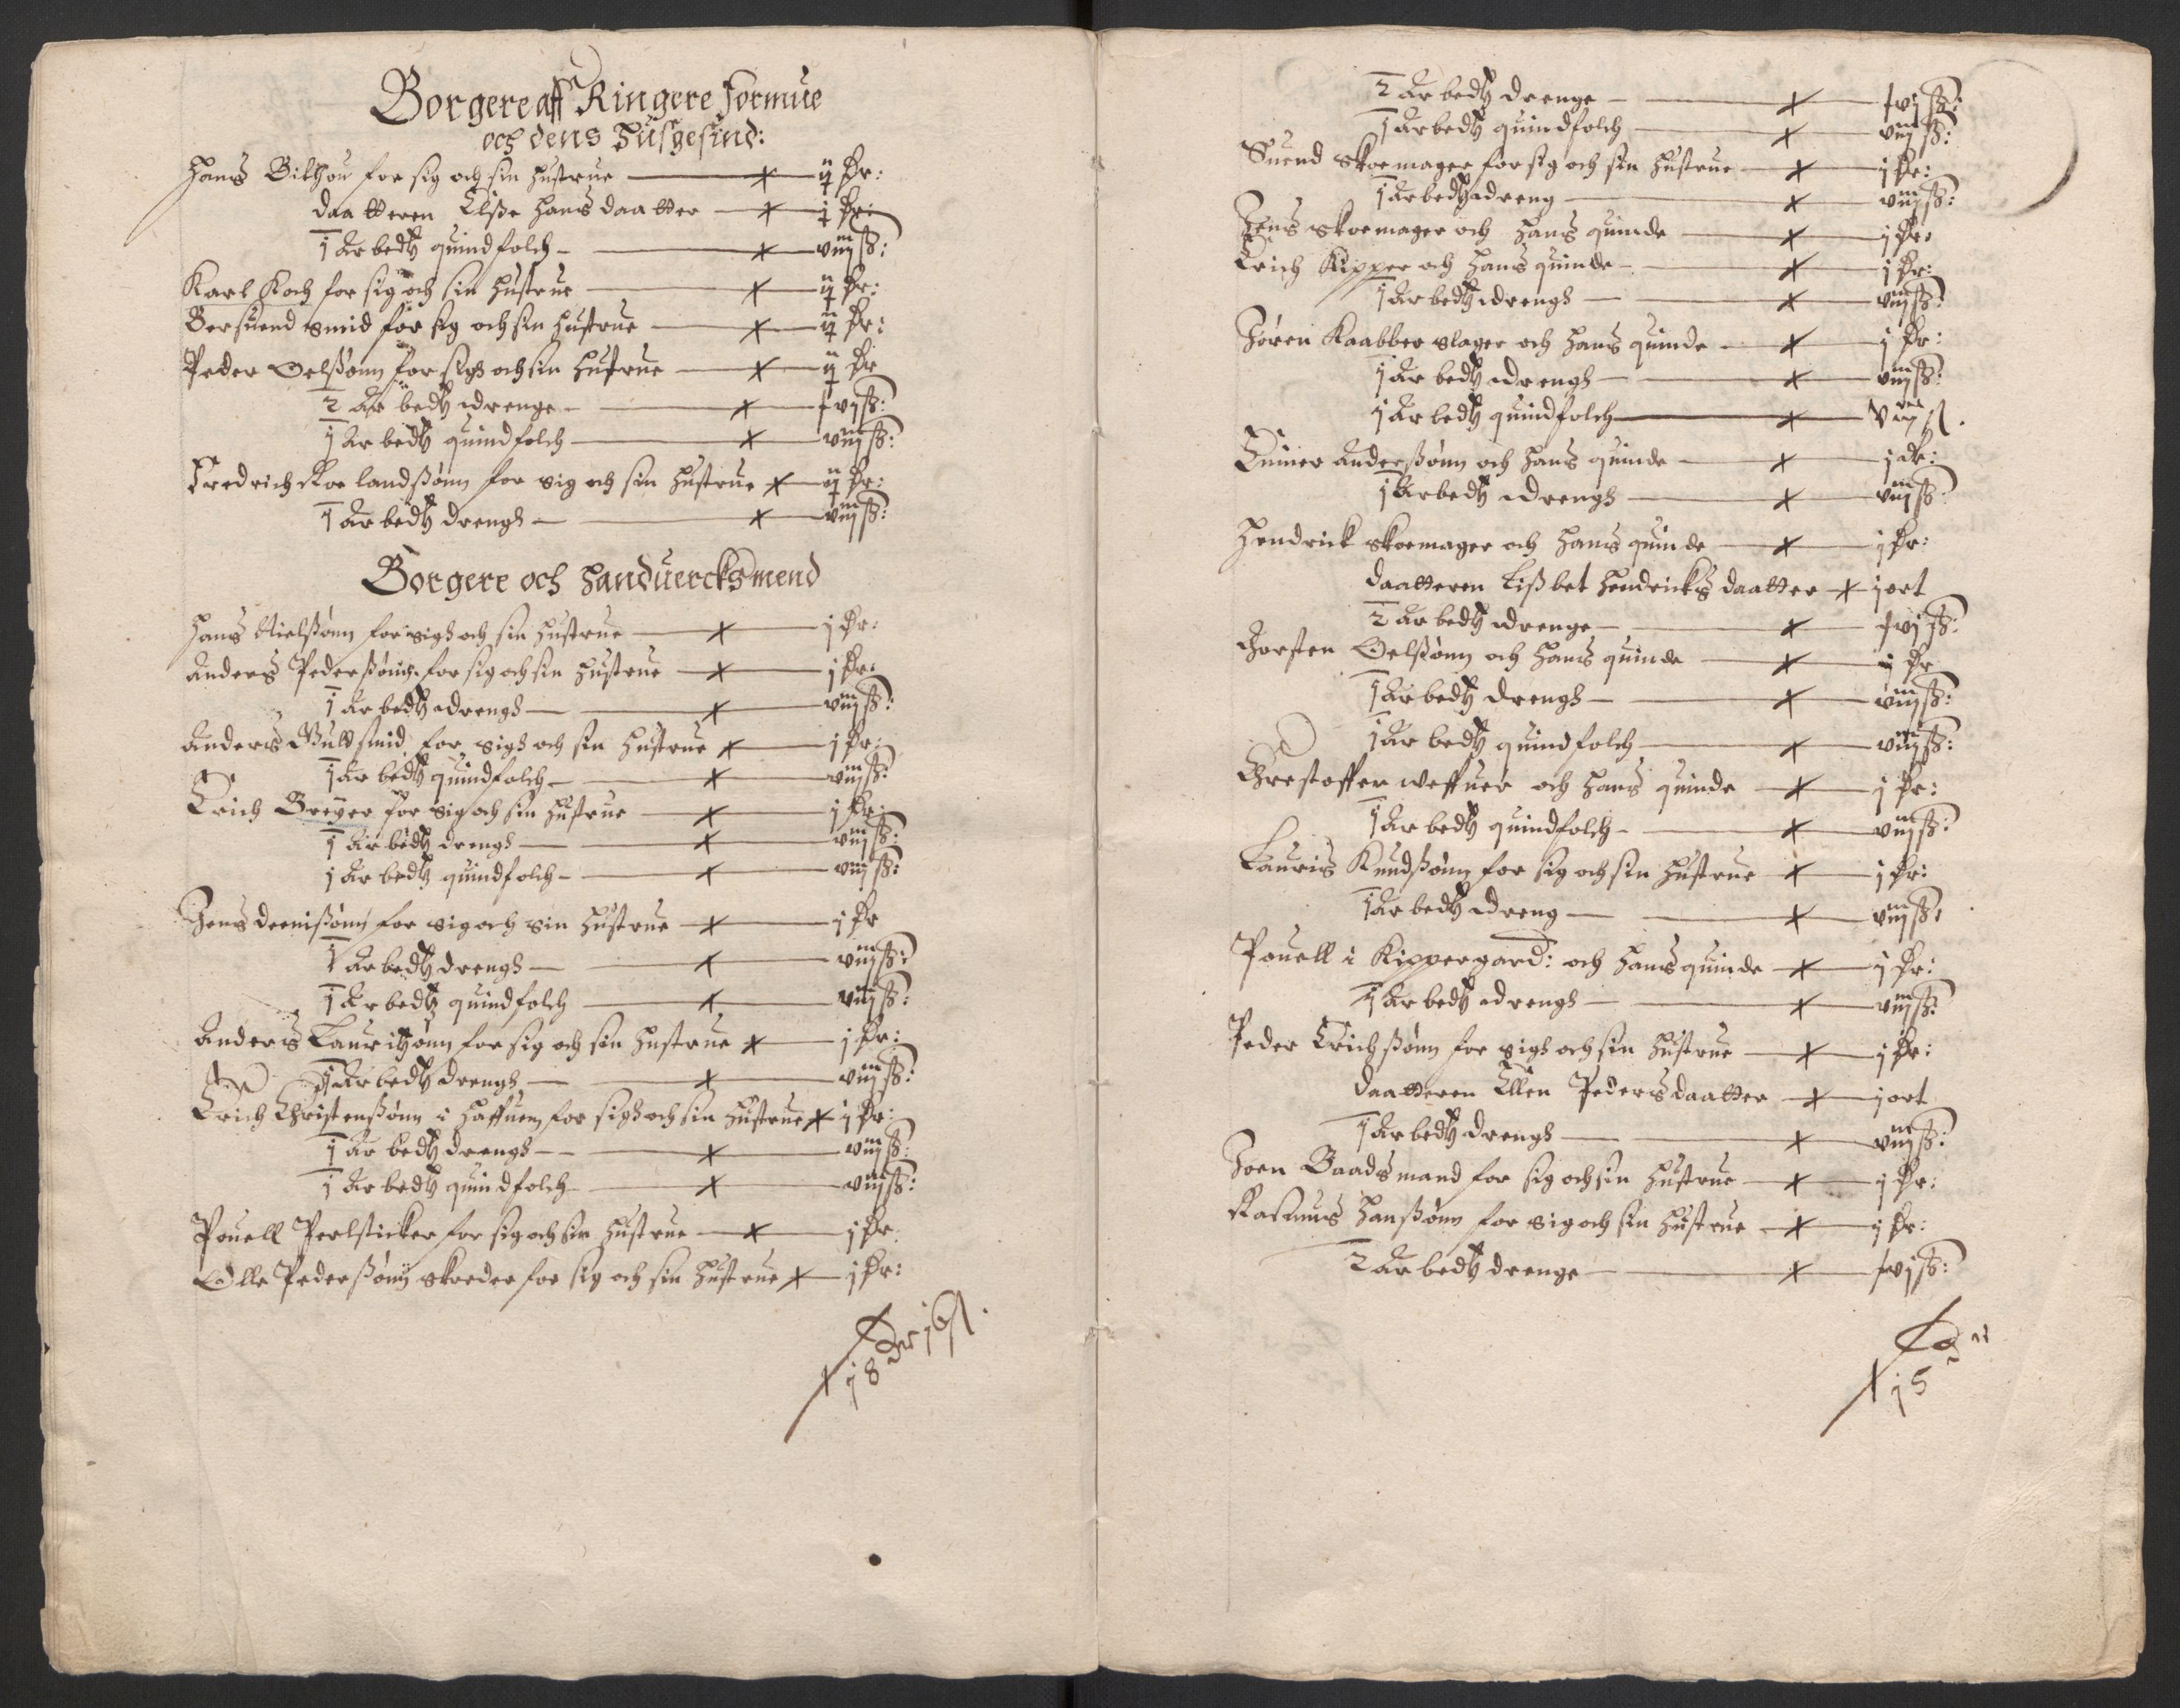 Borgere aff Ringere formue
och dens Husgesind:
Hans Bilhou for sig och sin hustrue — ij dr:
daatteren Elsße Hansdaatter — j dr:
1 Arbedtz quindfolch — viij ß:
Karl Koch for sig och sin hustrue — ij dr:
Bersuend smid for sig och sin hustrue — ij dr:
Peder Oelßønn for sigh och sin hustrue — ij dr
2 Arbedtz drenge — xvj ß:
1 Arbedtz quindfolch — viij ß:
Fredrich Roelandßønn for sig och sin hustrue — ij dr:
1 Arbedtz drengh — viij ß:
Borgere och Handuercksmend
Hans Nielßønn for sigh och sin hustrue — j dr:
Anders Pederßønn for sig och sin hustrue — j dr:
1 Arbedtz drengh — viij ß:
Anders Guldsmid for sigh och sin hustrue — j dr:
1 Arbedtz quindfolch — viij ß:
Erich Breyer for sig och sin hustrue — j dr:
1 Arbedtz drengh — viij ß:
1 Arbedtz quindfolch — viij ß:
Jens deenißønn for sig och sin hustrue — j dr
1 Arbedtz drengh — viij ß:
1 Arbedtz quindfolch — viij ß:
Anders Lauritzønn for sig och sin hustrue — j dr:
1 Arbedtz drengh — viij ß:
Erich Christenßønn i haffuen for sigh och sin hustrue — j dr:
1 Arbedtz drengh — viij ß:
1 Arbedtz quindfolch — viij ß:
Pouell Perlsticker for sig och sin hustrue — j dr
Olle Pederßønn skreder for sig och sin hustrue — j dr:
18 dr 16 ß.
2 Arbedtz drenge — xvj ß:
1 Arbedtz quindfolch — viij ß:
Suend skoemager for sig och sin hustrue — j dr:
1 Arbedtz dreng — viij ß:
Jens skoemager och hans quinde — j dr
Erich Kipper och hans quinde — j dr:
1 Arbedtz drengh — viij ß:
Søren Kaabberslager och hans quinde — j dr:
1 Arbedtz drengh — viij ß:
1 Arbedtz quindfolch — viij ß.
Einer Anderßønn och hans quinde — j dr:
1 Arbedtz drengh — viij ß
Hendrick skoemager och hans quinde — j dr:
daatteren Lißbet Hendricks daatter — j ort
2 Arbedtz drenge — xvj ß:
Thorsten Oelßønn och hans quinde — j dr
1 Arbedtz drengh — viij ß:
1 Arbedtz quindfolch — viij ß:
Chrestoffer weffuer och hans quinde — j dr:
1 Arbedtz quindfolch — viij ß:
Lauris Knudßønn for sig och sin hustrue — j dr:
1 Arbedtz dreng — viij ß:
Pouell i Kippergard: och hans quinde — j dr:
1 Arbedtz drengh — viij ß:
Peder Erichßønn for sigh och sin hustrue — j dr:
daatteren Ellen Pedersdaatter — j ort
1 Arbedtz drengh — viij ß:
Joen Baadsmand for sig och sin hustrue — j dr:
Rasmus Hanßønn for sig och sin hustrue — j dr:
2 Arbedtz drenge — xvj ß:
15